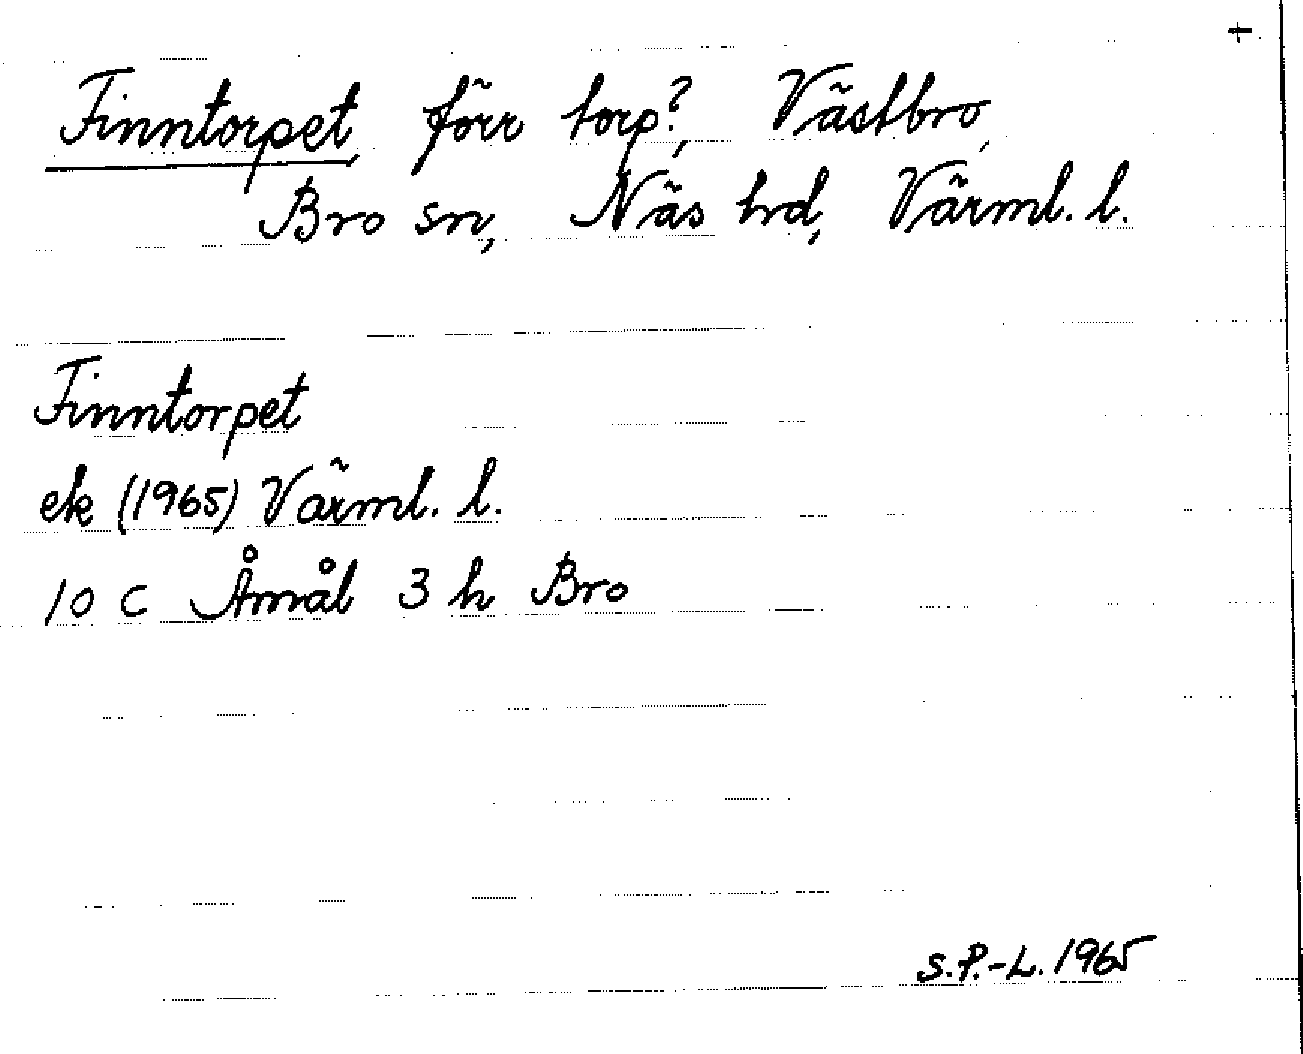 +
Finntorpet, förr torp?, Västbro,
Bro sn, Näs hd, Värml. l.
Finntorpet
ek (1965) Värml. l.
10 C Åmål 3 h Bro
S.P.-L. 1965